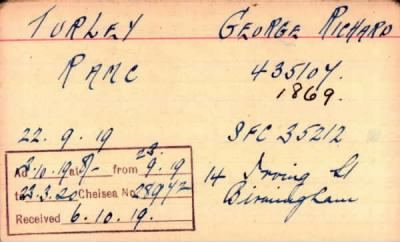 TURLEY GEORGE RICHARD
RAMC 435107.
1869.
22.9.19 SFC 35212
Ad. 3.10.19 at 8/- from 23.9.19
to 23.3.20 Chelsea No 28942
Received 6.10.19.
14 Irving St
Birmingham